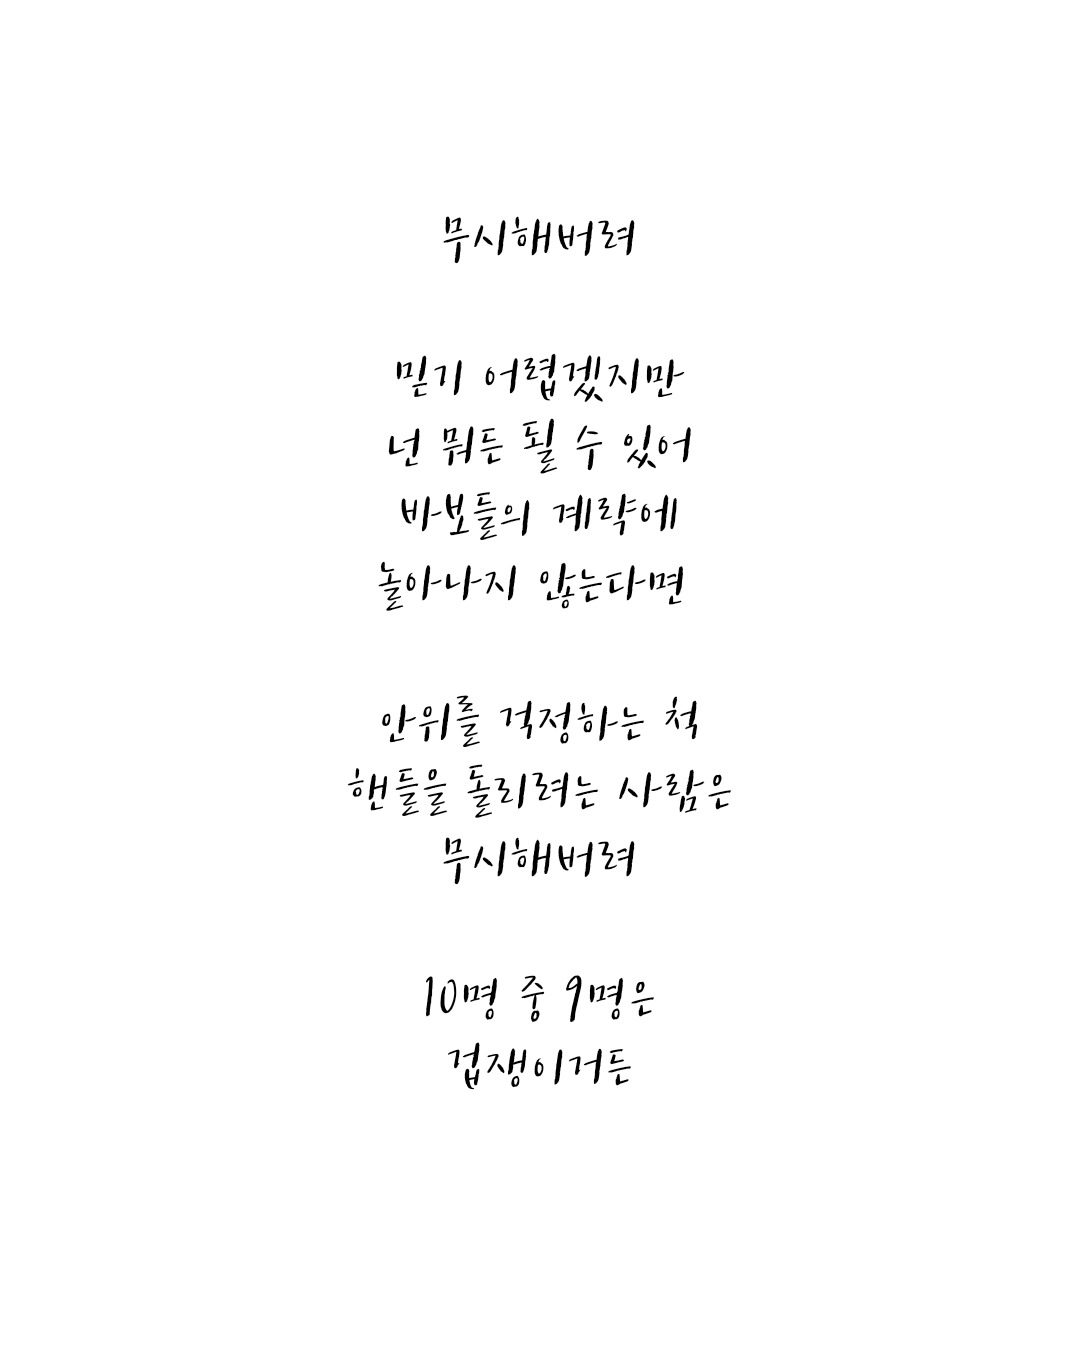 무시해버려
믿기 어렵겠지만
넌 뭐든 될 수 있어
바보들의 계략에
놀아나지 않는다면
안위를 걱정하는 척
핸들을 돌리려는 사람은
무시해버려
10명 중 9명은
겁쟁이거든